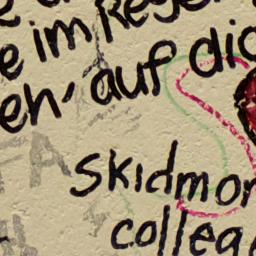 e im Regen
en, auf dic
skidmor
colleg